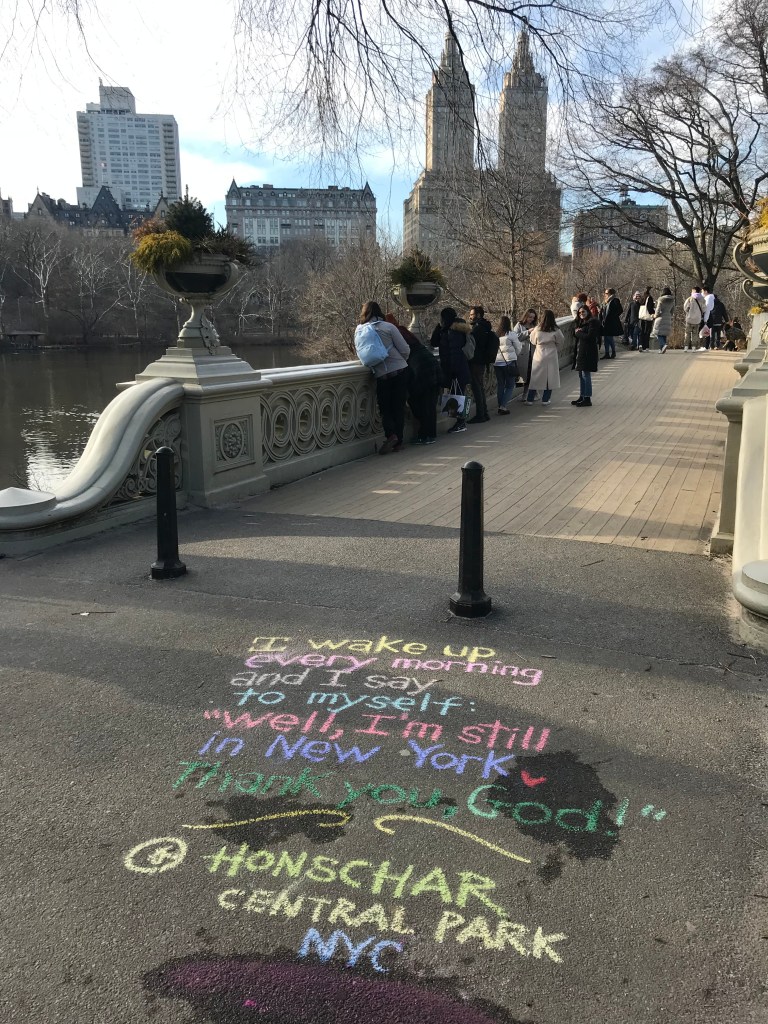 I wake up
every morning
and I say
to myself:
"Well, I'm still
in New York
Thank you, God!"
HONSCHAR
CENTRAL PARK
NYC